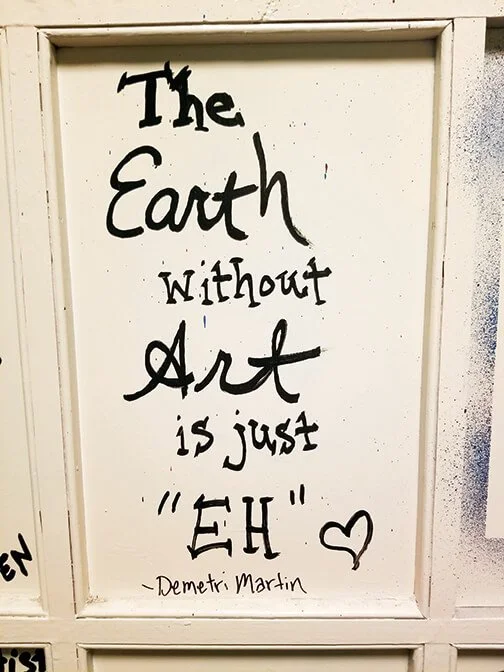 The
Earth
without
Art
is just
"EH"
-Demetri Martin
EN